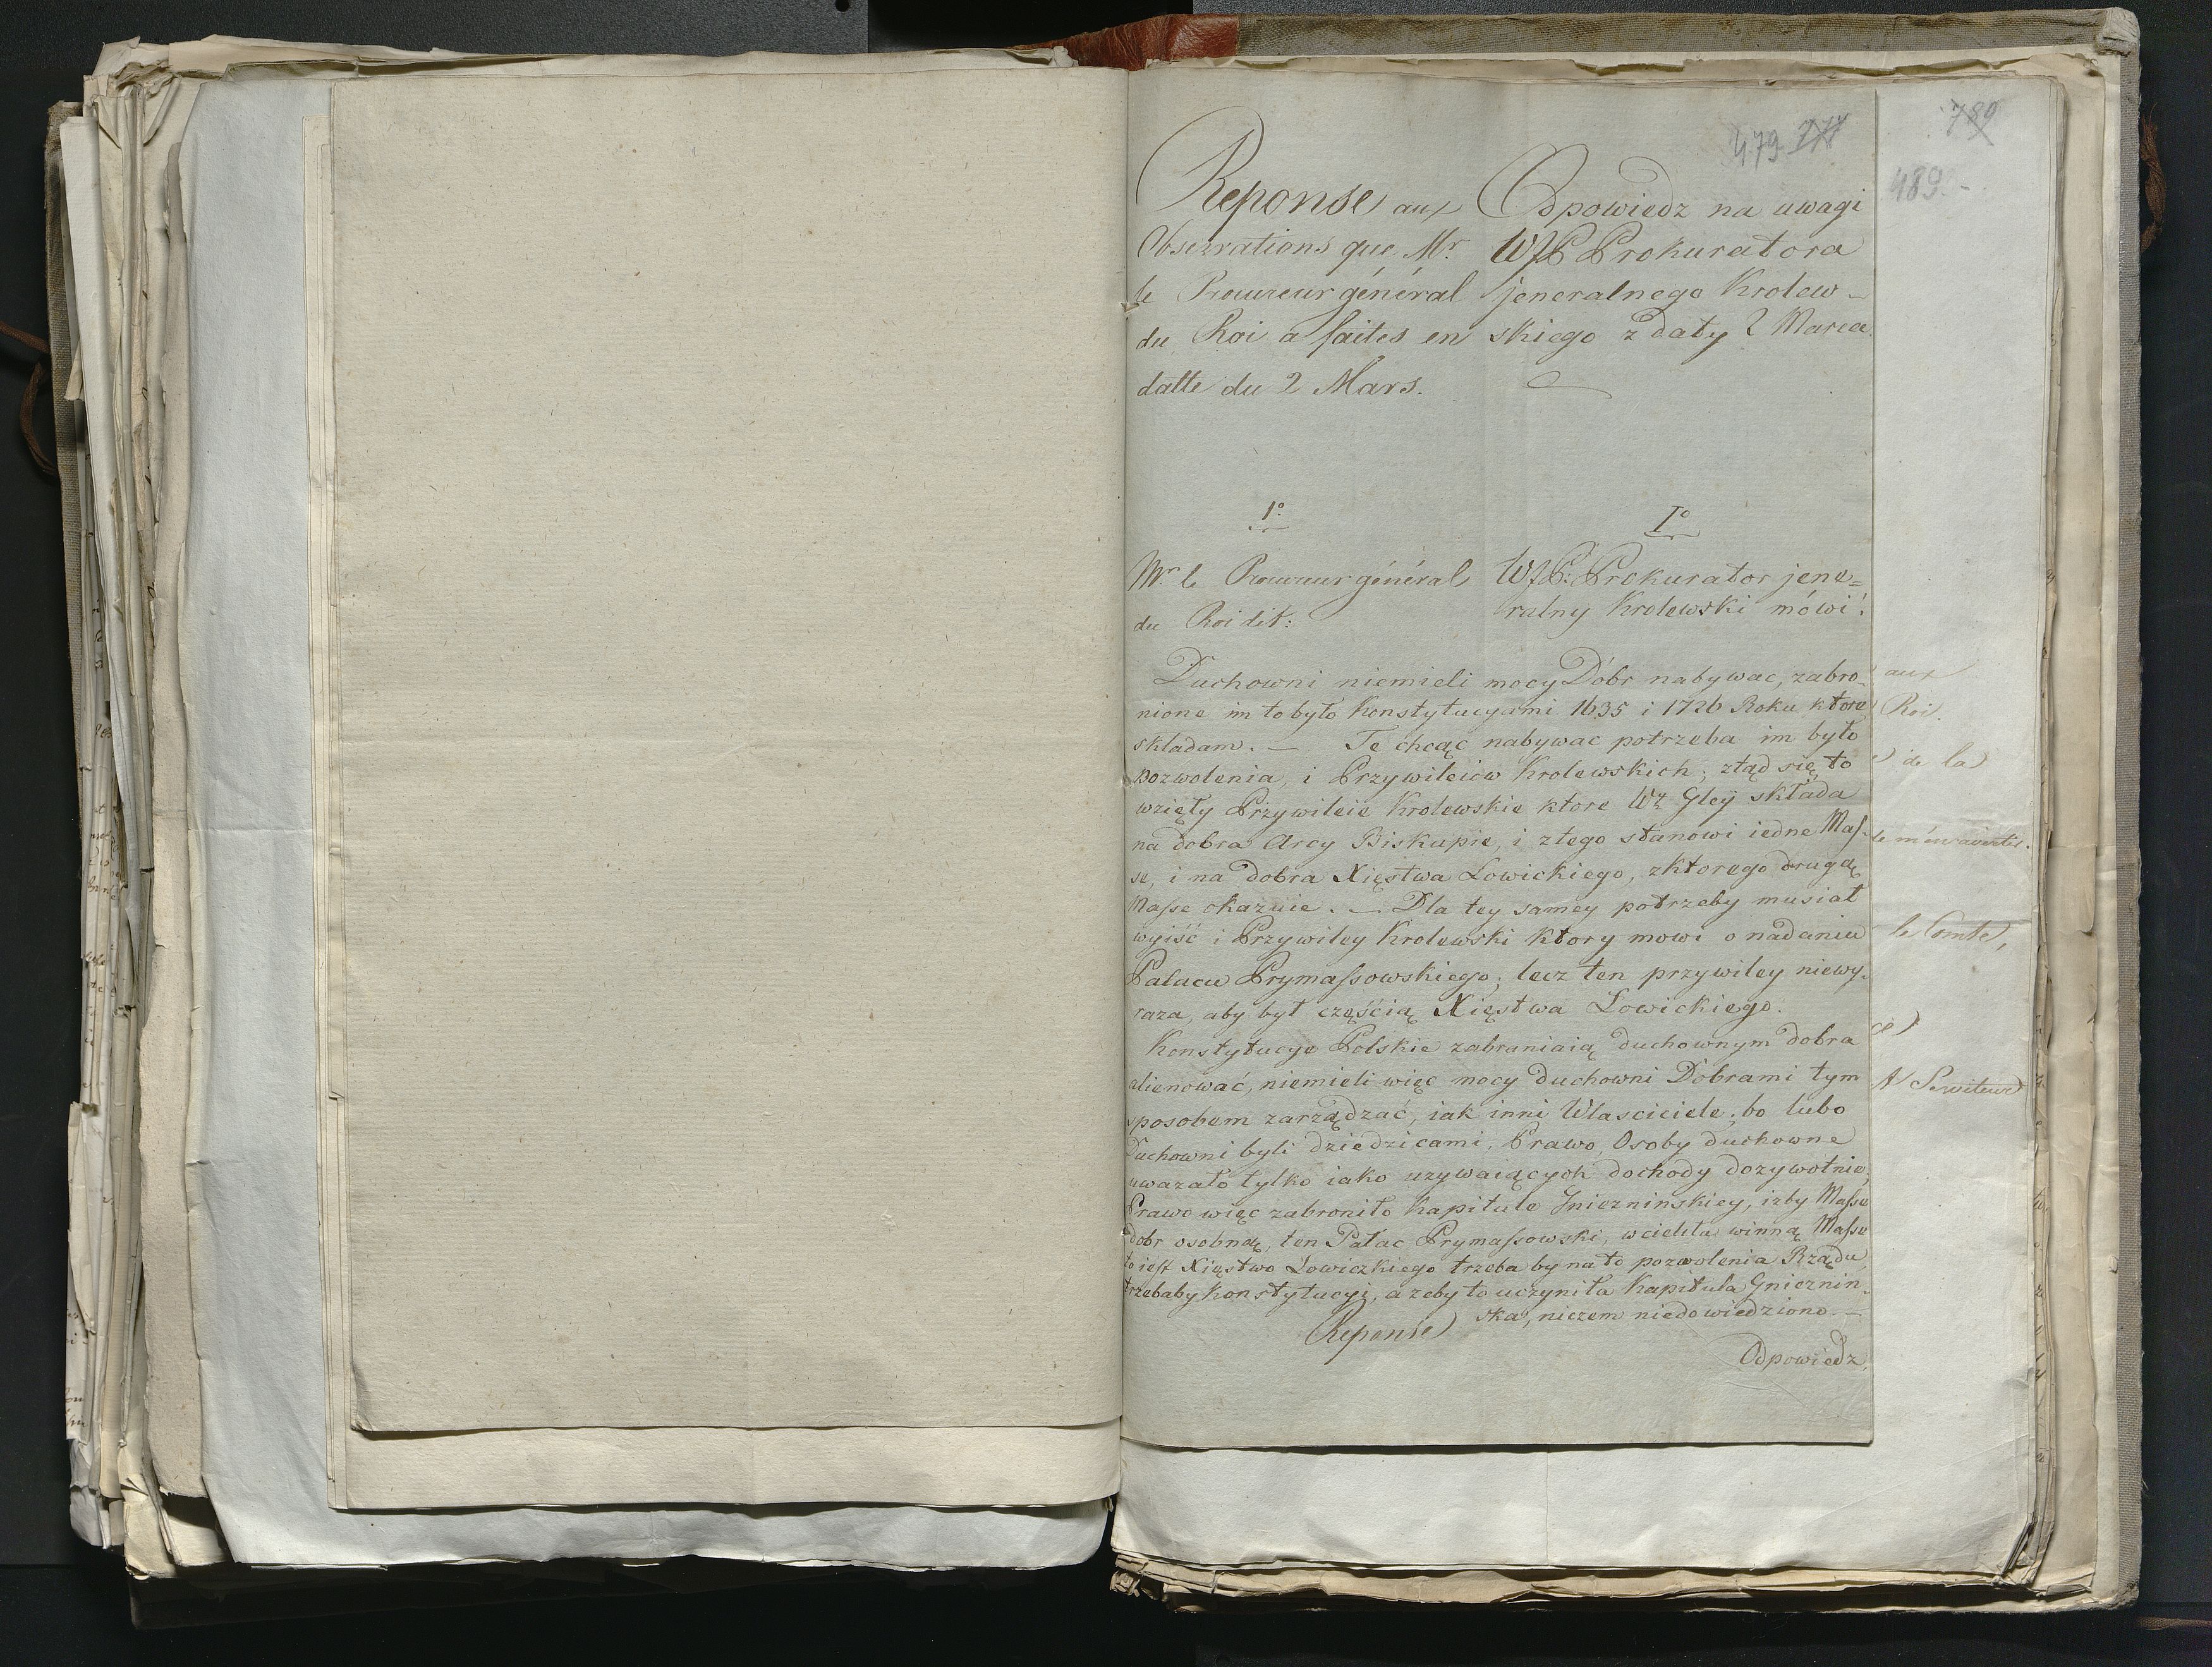 479 777
789
489.-
Reponse aux
Observations que Mr.
le Procureur général
du Roi a faites en
datte du 2 Mars.
Odpowiedz na uwagi
WJP Prokuratora
jeneralnego Krolew-
skiego z daty 2 Marca
1º
Mr le Procureur général
du Roi dit:
Iº
WJP: Prokurator jene=
ralny Krolewski mówi:
Duchowni niemieli mocy Dóbr nabywac, zabro-
nione im to było Konstytucyami 1635 i 1726 Roku ktore
skladam. — Te chcąc nabywac potrzeba im było
pozwolenia, i Przywileiow Krolewskich; ztąd się to
wzięły Przywileie Krolewskie ktore Wż Gley składa
na dobra Arcy Biskupie, i ztego stanowi iedne Mas-
se, i na dobra Xięstwa Lowickiego, zktorego drugą
Masse okazuie. — Dla tey samey potrzeby musiał
wyiść i Przywiley Krolewski ktory mowi o nadaniu
Pałacu Prymassowskiego; lecz ten przywiley niewy-
raza, aby był częścią Xięstwa Lowickiego.
Konstytucye Polskie zabraniaią duchownym dobra
alienować, niemieli więc mocy duchowni Dobrami tym
sposobem zarządzać, iak inni Własciciele, bo lubo
Duchowni byli dziedzicami, Prawo, Osoby duchowne
uwazało tylko iako uzywaiących dochody dozywotnie,
Prawo więc zabroniło Kapitule Gnieznińskiey, izby Masse
dobr osobną, ten Pałac Prymassowski, wcieliła winną Masse
to iest Xięstwo Lowiczkiego trzeba by na to pozwolenia Rządu,
trzebaby Konstytucyi, a zeby to uczyniła Kapituła Gnieznin-
ska, niczem niedowiedziono. —
Reponse
Odpowiedz,
aux
Roi.
de la
le Comte,
ce